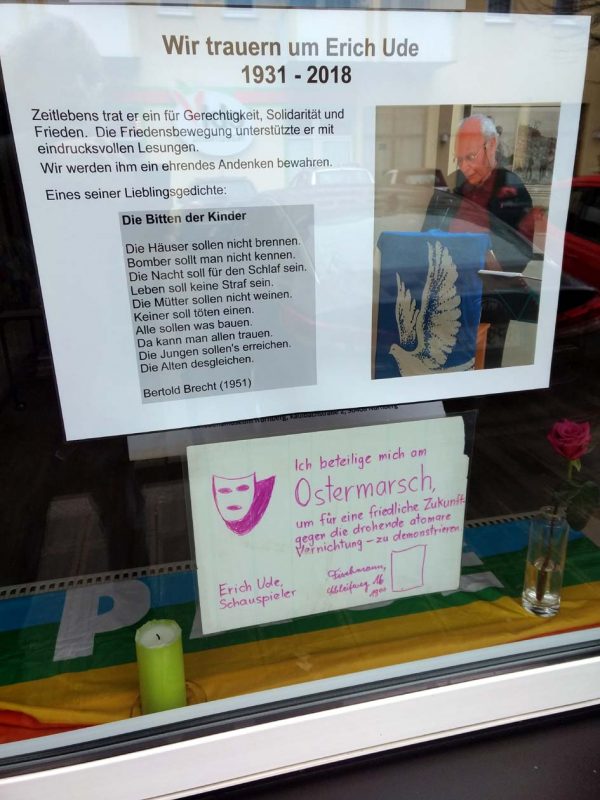 Wir trauern um Erich Ude
1931 - 2018
Zeitlebens trat er ein für Gerechtigkeit, Solidarität und
Frieden. Die Friedensbewegung unterstützte er mit
eindrucksvollen Lesungen.
Wir werden ihm ein ehrendes Andenken bewahren.
Eines seiner Lieblingsgedichte:
Die Bitten der Kinder
Die Häuser sollen nicht brennen.
Bomber sollt man nicht kennen.
Die Nacht soll für den Schlaf sein.
Leben soll keine Straf sein.
Die Mütter sollen nicht weinen.
Keiner soll töten einen.
Alle sollen was bauen.
Da kann man allen trauen.
Die Jungen sollen's erreichen.
Die Alten desgleichen.
Bertold Brecht (1951)
Ich beteilige mich am
Ostermarsch,
um für eine friedliche Zukunft
gegen die drohende atomare
Vernichtung - zu demonstrieren
Erich Ude,
Schauspieler